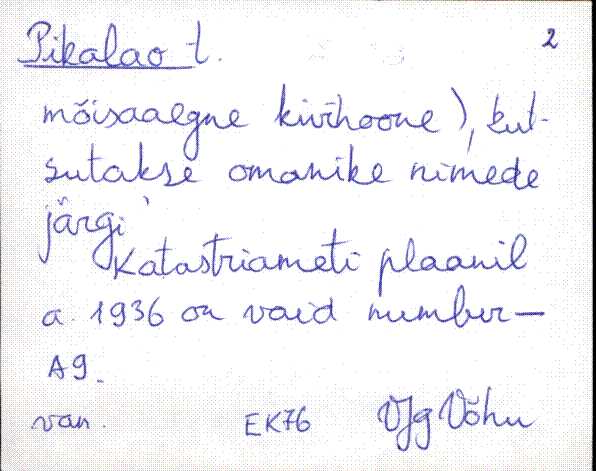 Pikalao t. 2
mõisaaegne kivihoone), kut-
sutakse omanike nimede
järgi
Katastriameti plaanil
a. 1936 on vaid number—
A9.
van. EK76 VJg Võhu